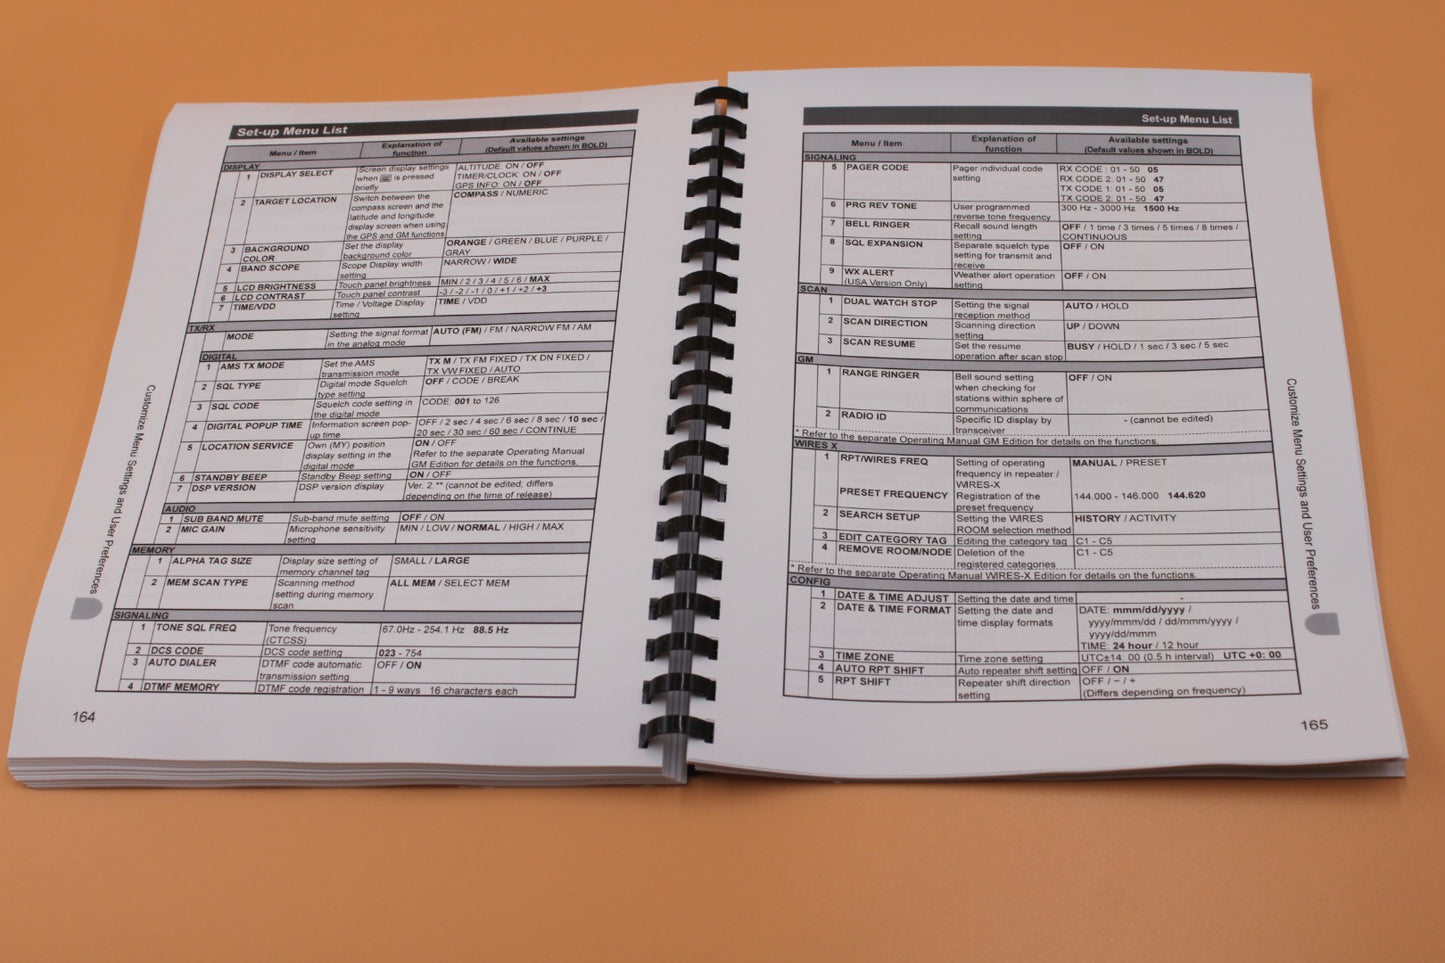 Set-up Menu List
Menu / Item Explanation of function Available settings (Default values shown in BOLD)
DISPLAY
1 DISPLAY SELECT Screen display settings ALTITUDE: ON / OFF
when is pressed TIMER/CLOCK: ON / OFF
briefly GPS INFO: ON / OFF
2 TARGET LOCATION Switch between the COMPASS / NUMERIC
compass screen and the
latitude and longitude
display screen when using
the GPS and GM functions
3 BACKGROUND Set the display ORANGE / GREEN / BLUE / PURPLE /
COLOR background color GRAY
4 BAND SCOPE Scope Display width NARROW / WIDE
setting
5 LCD BRIGHTNESS Touch panel brightness MIN / 2 / 3 / 4 / 5 / 6 / MAX
6 LCD CONTRAST Touch panel contrast -3 / -2 / -1 / 0 / +1 / +2 / +3
7 TIME/VDD Time / Voltage Display TIME / VDD
setting
TX/RX
MODE Setting the signal format AUTO (FM) / FM / NARROW FM / AM
in the analog mode
DIGITAL
1 AMS TX MODE Set the AMS TX M / TX FM FIXED / TX DN FIXED /
transmission mode TX VW FIXED / AUTO
2 SQL TYPE Digital mode Squelch OFF / CODE / BREAK
type setting
3 SQL CODE Squelch code setting in CODE: 001 to 126
the digital mode
4 DIGITAL POPUP TIME Information screen pop- OFF / 2 sec / 4 sec / 6 sec / 8 sec / 10 sec /
up time 20 sec / 30 sec / 60 sec / CONTINUE
5 LOCATION SERVICE Own (MY) position ON / OFF
display setting in the Refer to the separate Operating Manual
digital mode GM Edition for details on the functions.
6 STANDBY BEEP Standby Beep setting ON / OFF
7 DSP VERSION DSP version display Ver. 2.** (cannot be edited, differs
depending on the time of release)
AUDIO
1 SUB BAND MUTE Sub-band mute setting OFF / ON
2 MIC GAIN Microphone sensitivity MIN / LOW / NORMAL / HIGH / MAX
setting
MEMORY
1 ALPHA TAG SIZE Display size setting of SMALL / LARGE
memory channel tag
2 MEM SCAN TYPE Scanning method ALL MEM / SELECT MEM
setting during memory
scan
SIGNALING
1 TONE SQL FREQ Tone frequency 67.0Hz - 254.1 Hz 88.5 Hz
(CTCSS)
2 DCS CODE DCS code setting 023 - 754
3 AUTO DIALER DTMF code automatic OFF / ON
transmission setting
4 DTMF MEMORY DTMF code registration 1 - 9 ways 16 characters each
Customize Menu Settings and User Preferences
164
Set-up Menu List
Menu / Item Explanation of function Available settings (Default values shown in BOLD)
SIGNALING
5 PAGER CODE Pager individual code RX CODE : 01 - 50 05
setting RX CODE 2: 01 - 50 47
TX CODE 1: 01 - 50 05
TX CODE 2: 01 - 50 47
6 PRG REV TONE User programmed 300 Hz - 3000 Hz 1500 Hz
reverse tone frequency
7 BELL RINGER Recall sound length OFF / 1 time / 3 times / 5 times / 8 times /
setting CONTINUOUS
8 SQL EXPANSION Separate squelch type OFF / ON
setting for transmit and
receive
9 WX ALERT Weather alert operation OFF / ON
(USA Version Only) setting
SCAN
1 DUAL WATCH STOP Setting the signal AUTO / HOLD
reception method
2 SCAN DIRECTION Scanning direction UP / DOWN
setting
3 SCAN RESUME Set the resume BUSY / HOLD / 1 sec / 3 sec / 5 sec
operation after scan stop
GM
1 RANGE RINGER Bell sound setting OFF / ON
when checking for
stations within sphere of
communications
2 RADIO ID Specific ID display by - (cannot be edited)
transceiver
* Refer to the separate Operating Manual GM Edition for details on the functions.
WIRES X
1 RPT/WIRES FREQ Setting of operating MANUAL / PRESET
frequency in repeater /
WIRES-X
PRESET FREQUENCY Registration of the 144.000 - 146.000 144.620
preset frequency
2 SEARCH SETUP Setting the WIRES HISTORY / ACTIVITY
ROOM selection method
3 EDIT CATEGORY TAG Editing the category tag C1 - C5
4 REMOVE ROOM/NODE Deletion of the C1 - C5
registered categories
* Refer to the separate Operating Manual WIRES-X Edition for details on the functions.
CONFIG
1 DATE & TIME ADJUST Setting the date and time -
2 DATE & TIME FORMAT Setting the date and DATE: mmm/dd/yyyy /
time display formats yyyy/mmm/dd / dd/mmm/yyyy /
yyyy/dd/mmm
TIME: 24 hour / 12 hour
3 TIME ZONE Time zone setting UTC±14: 00 (0.5 h interval) UTC +0: 00
4 AUTO RPT SHIFT Auto repeater shift setting OFF / ON
5 RPT SHIFT Repeater shift direction OFF / − / +
setting (Differs depending on frequency)
Customize Menu Settings and User Preferences
165